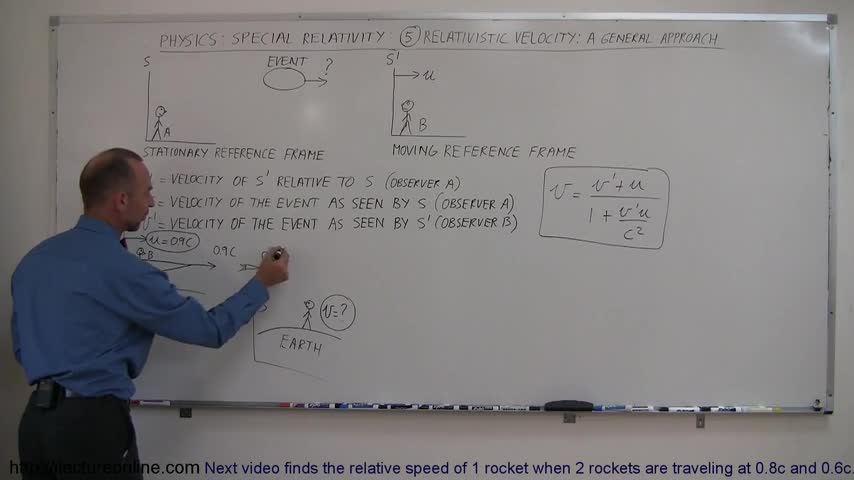 PHYSICS: SPECIAL RELATIVITY: ⑤ RELATIVISTIC VELOCITY: A GENERAL APPROACH
S EVENT ? S' u
A B
STATIONARY REFERENCE FRAME MOVING REFERENCE FRAME
= VELOCITY OF S' RELATIVE TO S (OBSERVER A)
= VELOCITY OF THE EVENT AS SEEN BY S (OBSERVER A)
v' = VELOCITY OF THE EVENT AS SEEN BY S' (OBSERVER B)
v = (v' + u) / (1 + v'u/c²)
u = 0.9C
B 0.9C
S v = ?
EARTH
http://ilectureonline.com Next video finds the relative speed of 1 rocket when 2 rockets are traveling at 0.8c and 0.6c.